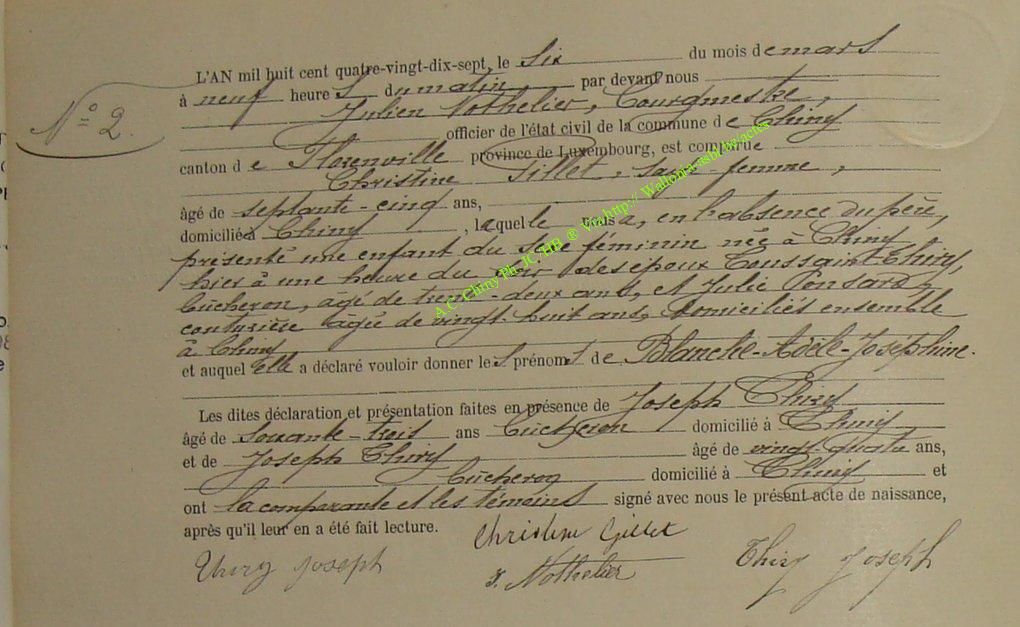 L'AN mil huit cent quatre-vingt-dix-sept, le six du mois de mars
à neuf heures du matin par devant nous
Julien Nothelier, Bourgmestre,
officier de l'état civil de la commune de Chiny
canton de Florenville province de Luxembourg, est comparue
Christine Gillet, sage-femme,
âgé de septante-cinq ans,
domiciliée à Chiny, laquelle nous a, en l'absence du père,
N° 2.
présenté une enfant du sexe féminin née à Chiny
hier à une heure du soir des époux Toussaint Thiry,
bûcheron, âgé de trente-deux ans, et Julie Ponsard,
couturière âgée de vingt-huit ans, domiciliés ensemble
à Chiny
et auquel Elle a déclaré vouloir donner les prénoms de Blanche-Adèle-Joséphine.
Les dites déclaration et présentation faites en présence de Joseph Thiry
âgé de soixante-trois ans bûcheron domicilié à Chiny
et de Joseph Thiry âgé de vingt-quatre ans,
bûcheron domicilié à Chiny et
ont la comparante et les témoins signé avec nous le présent acte de naissance,
après qu'il leur en a été fait lecture.
Christine Gillet
Thiry Joseph
J. Nothelier
Thiry Joseph
A.C. Chiny Ph. JC. HB ® Via http:// Wallonia.asbl/www/actes